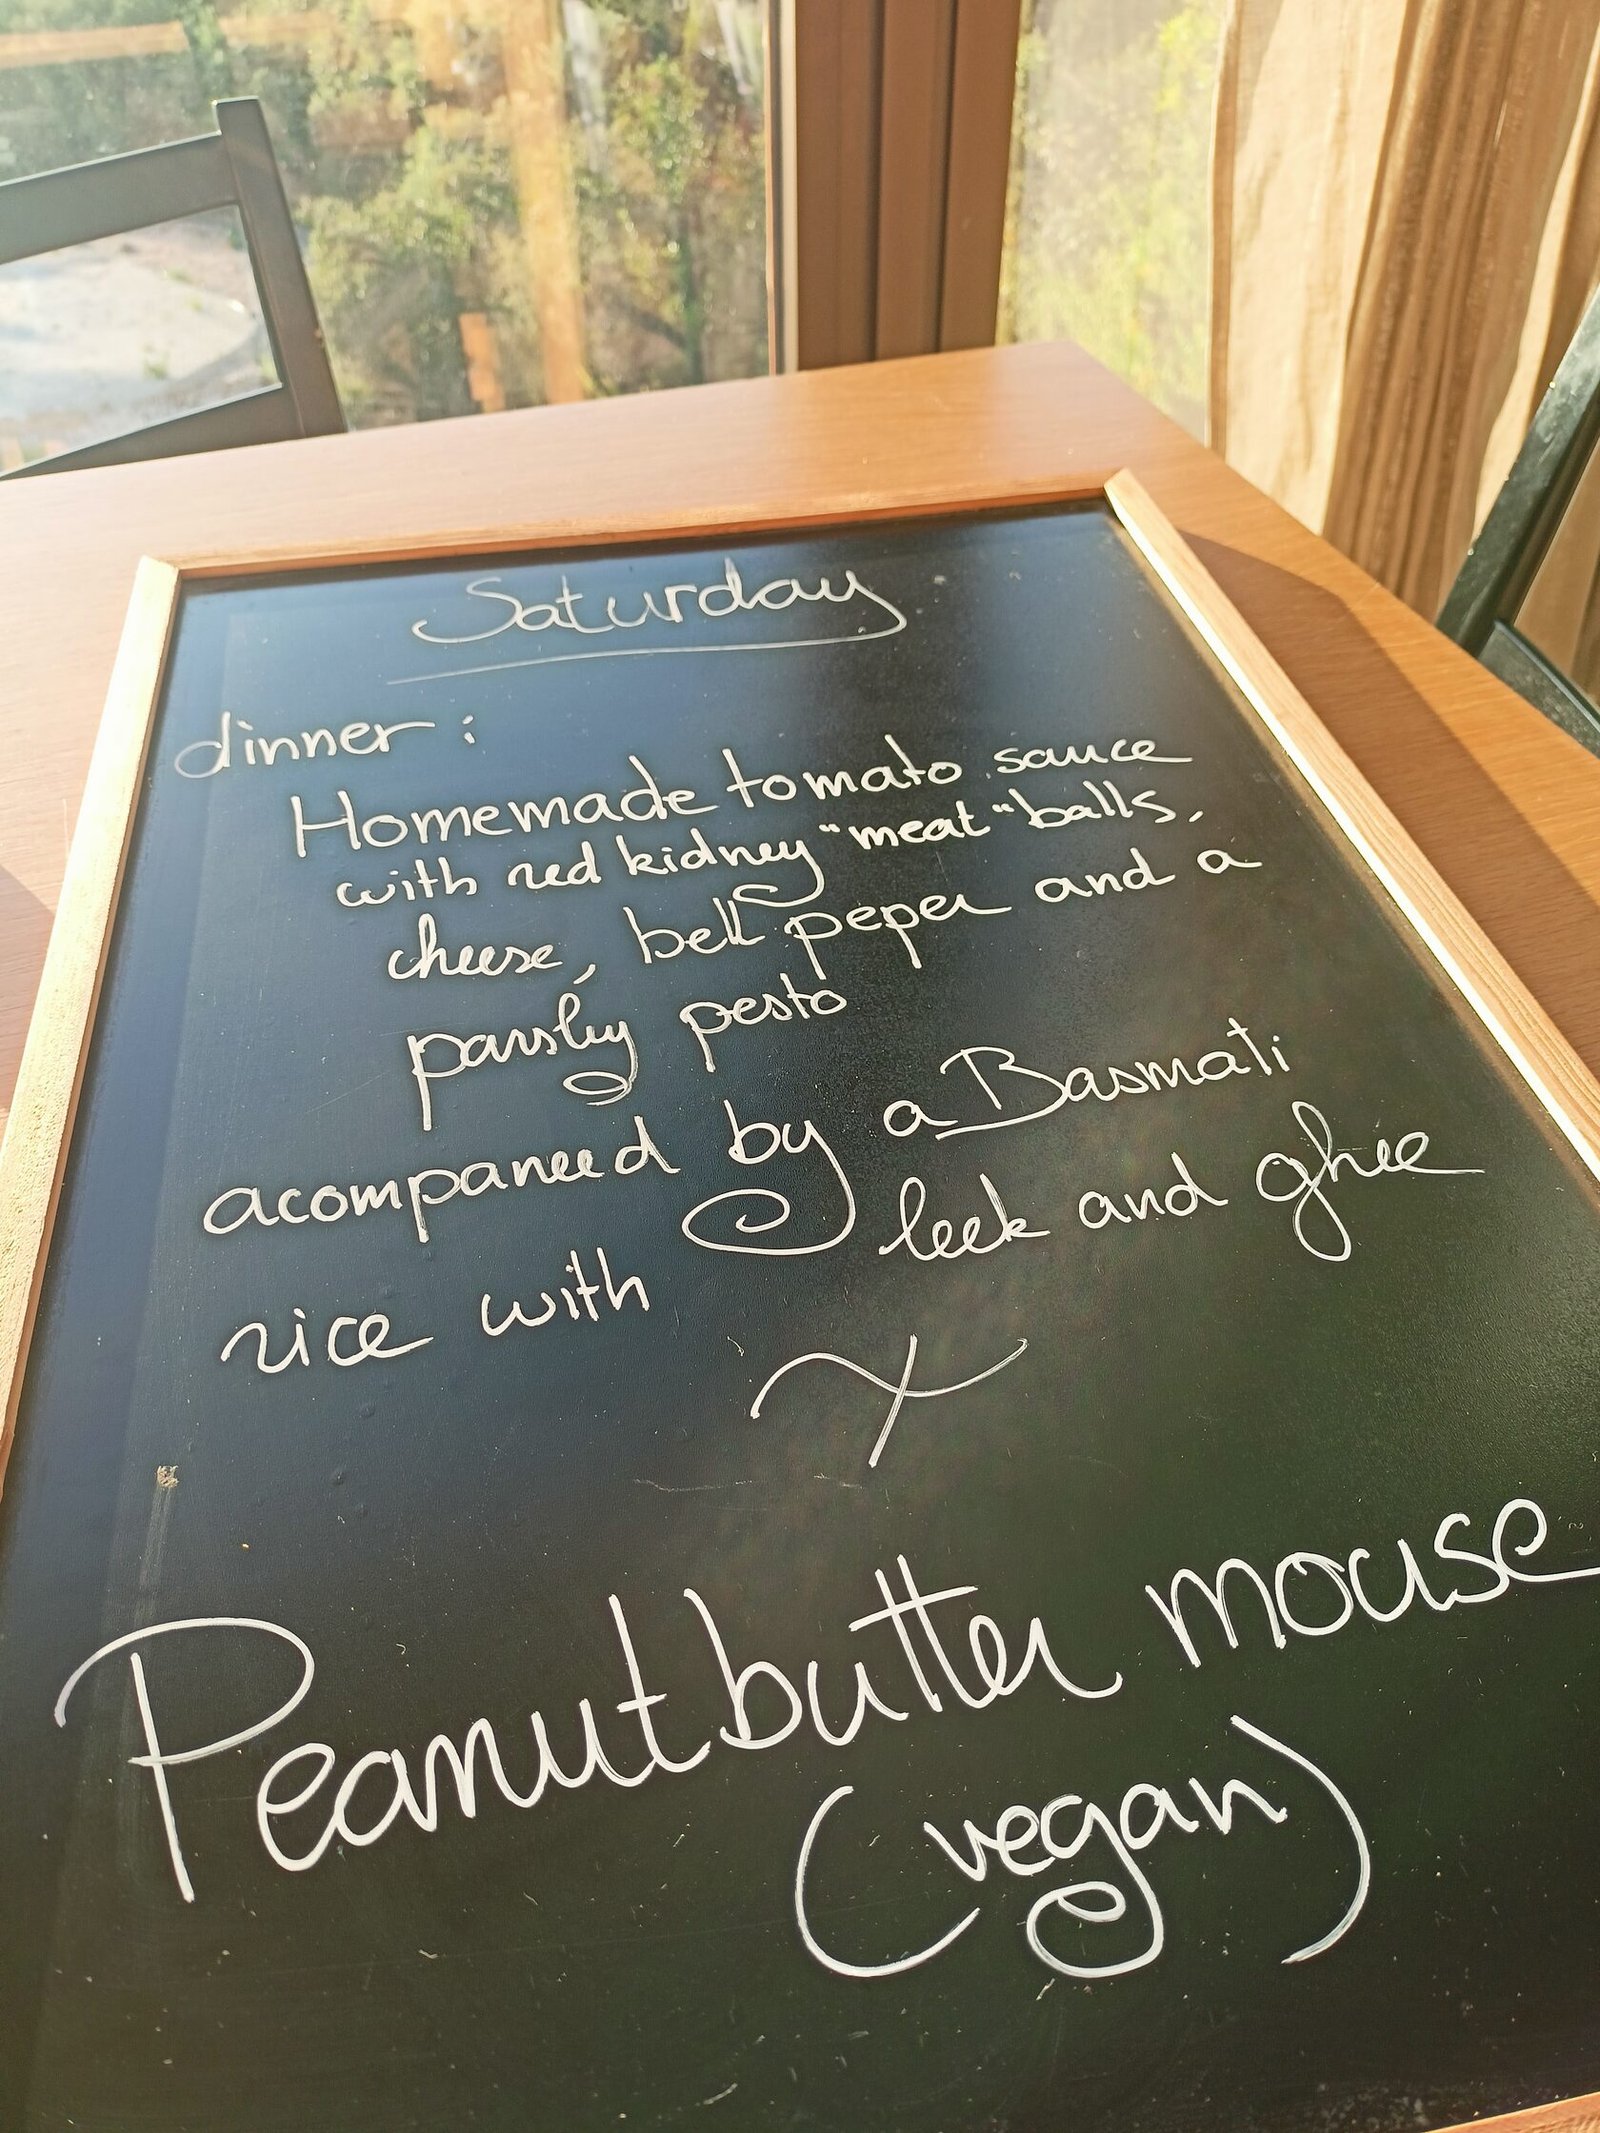 Saturday
dinner:
Homemade tomato sauce
with red kidney "meat" balls,
cheese, bell peper and a
parsley pesto
acompaneed by a Basmati
rice with leek and ghee
Peanutbutter mouse
(vegan)